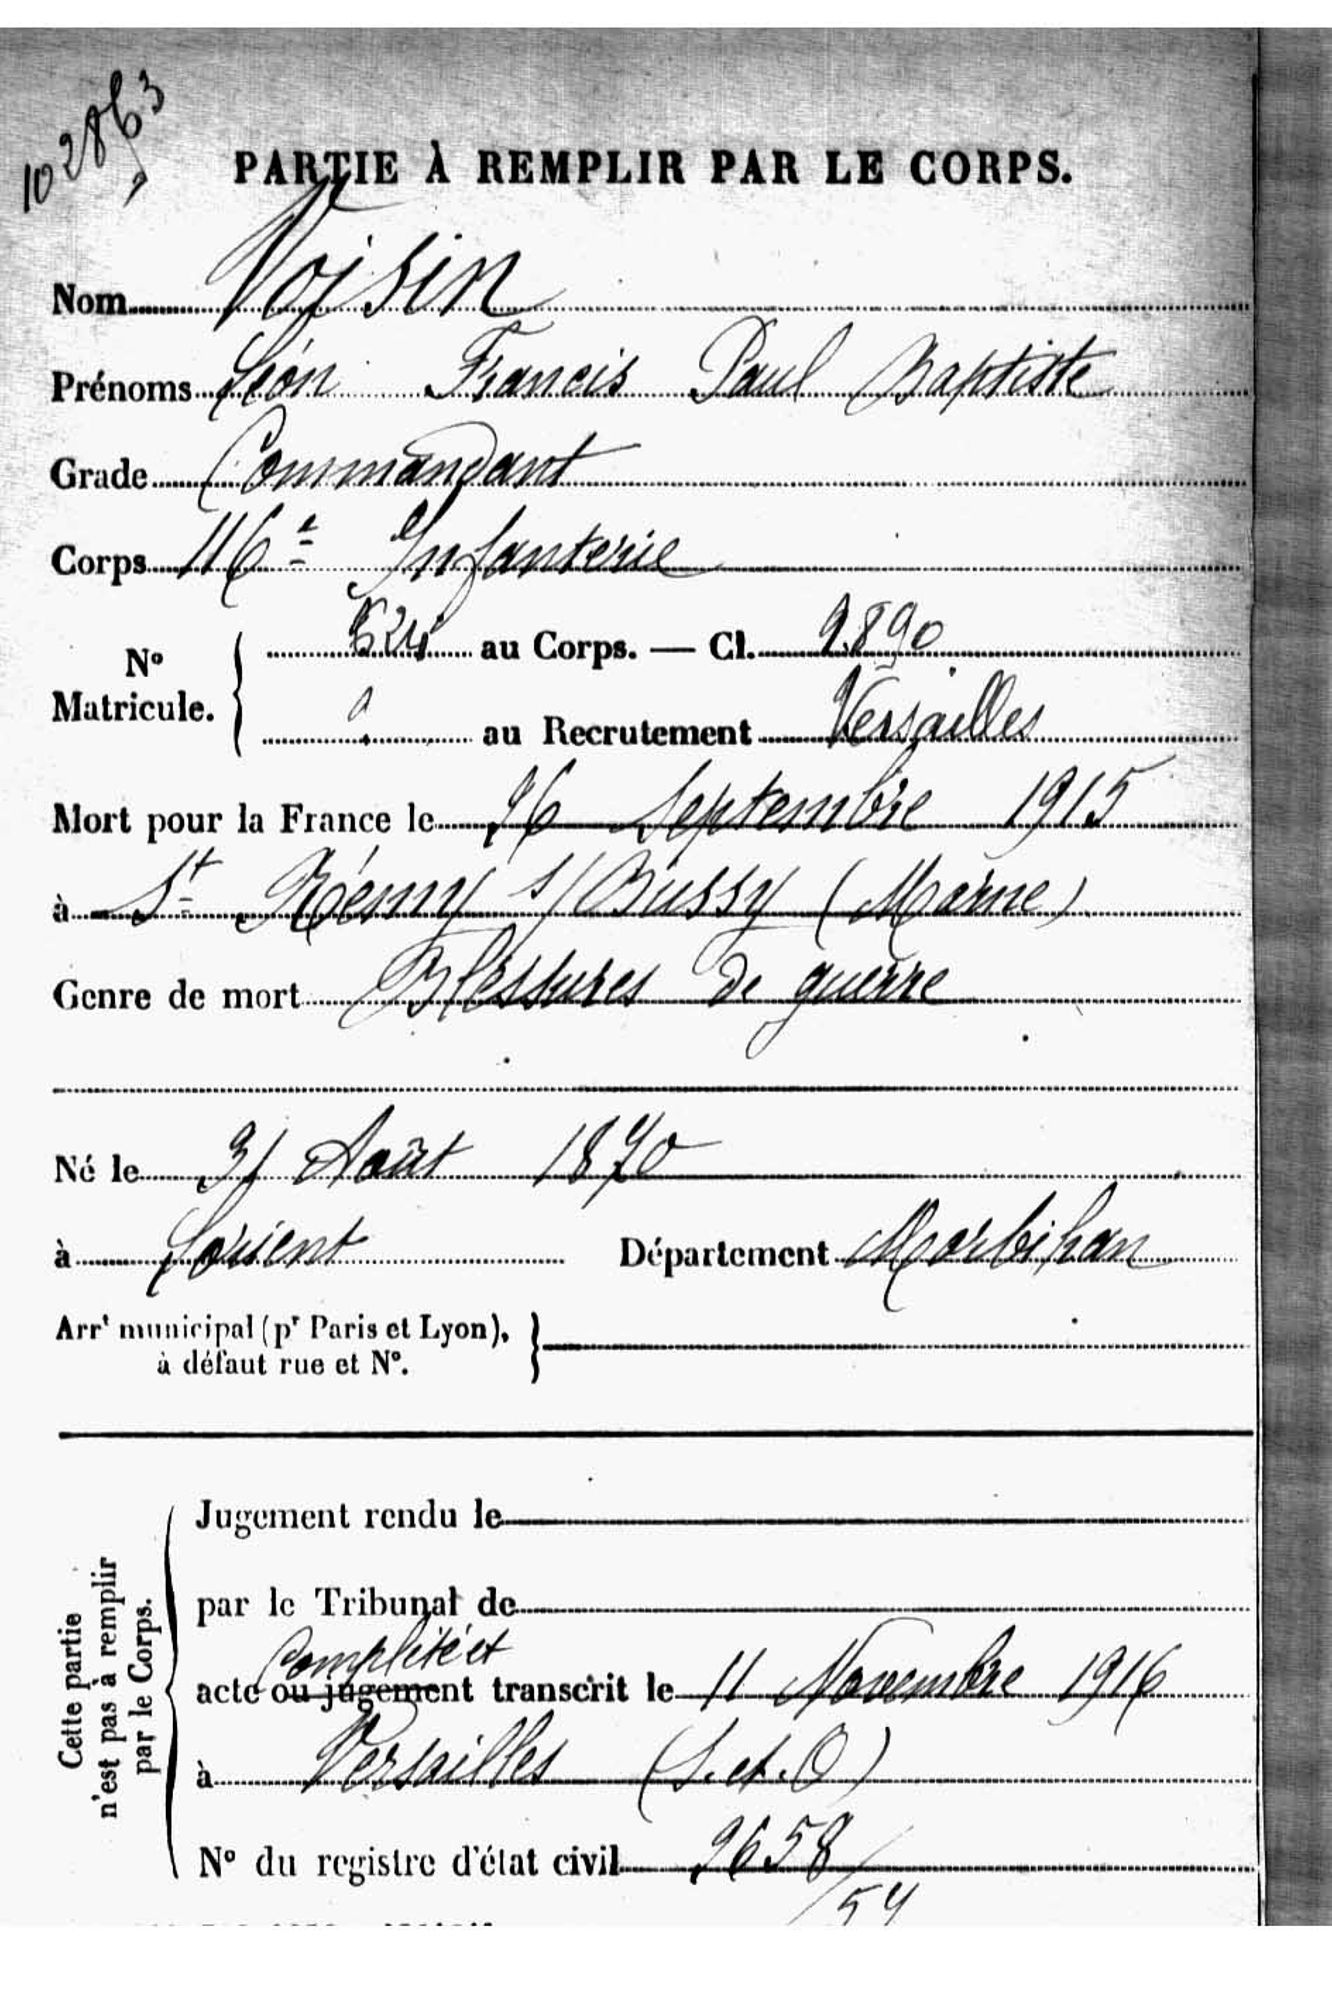 102863
PARTIE À REMPLIR PAR LE CORPS.
Nom Voisin
Prénoms Léon Francis Paul Baptiste
Grade Commandant
Corps 116e Infanterie
N° Matricule. 524 au Corps. — Cl. 1890
au Recrutement Versailles
Mort pour la France le 26 Septembre 1915
à St Rémy s/ Bussy (Marne)
Genre de mort Blessures de guerre
Né le 31 Août 1870
à Lorient Département Morbihan
Arrt municipal (pr Paris et Lyon),
à défaut rue et N°.
Cette partie
n'est pas à remplir
par le Corps.
Jugement rendu le
par le Tribunal de
complété et
acte ou jugement transcrit le 11 Novembre 1916
à Versailles (S. et. O)
N° du registre d'état civil 2658
/54